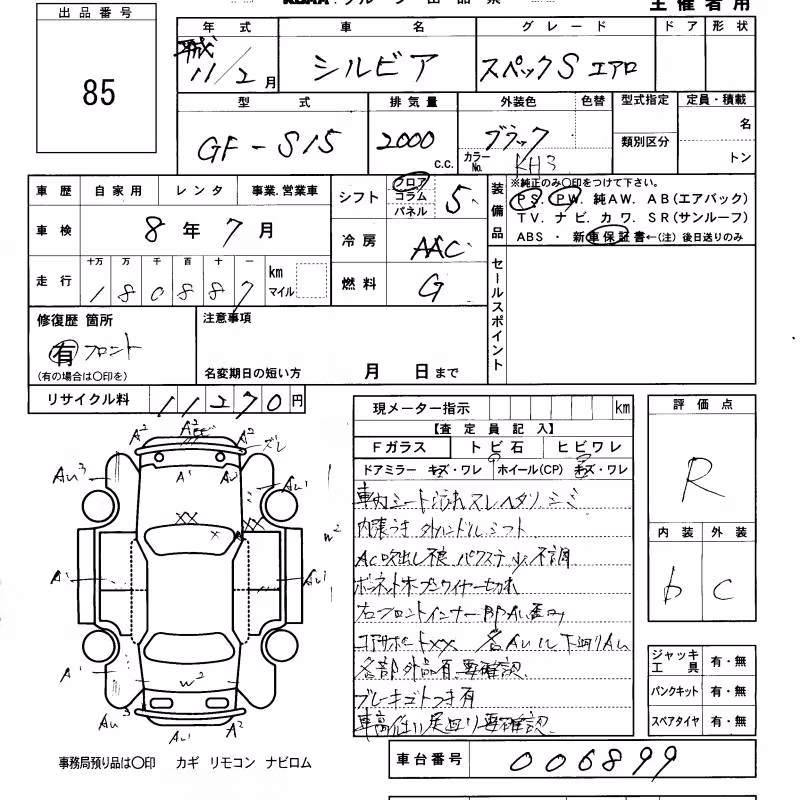 出品番号
85
主催者用
年式 車名 グレード ドア 形状
平成
11/2月 シルビア スペックS エアロ
型式 排気量 外装色 色替 型式指定 定員・積載
GF-S15 2000 c.c. ブラック カラーNo. KH3 類別区分 名
トン
車歴 自家用 レンタ 事業.営業車
シフト フロア コラム パネル 5
装備品 ※純正のみ〇印をつけて下さい。
PS. PW. 純AW. AB(エアバック)
TV. ナビ. カワ. SR(サンルーフ)
ABS ・ 新車保証書←(注) 後日送りのみ
車検 8年7月
冷房 AAC
走行 十万 万 千 百 十 一 km マイル
180887
燃料 G
セールスポイント
修復歴 箇所
有 フロント
(有の場合は〇印を)
注意事項
名変期日の短い方 月 日まで
リサイクル料 11270円
現メーター指示 km
【査定員記入】
Fガラス トビ石 ヒビワレ
ドアミラー キズ・ワレ ホイール(CP) キズ・ワレ
車内シート汚れスレヘタリ シミ
内張うき 外ハンドル シフト
AC吹出し不良
不調
ワイヤー切れ
右フロントインナー
コアサポートXX 各AU 下廻りAU
各部外品有 要確認
ブレーキゴトつき有
車高低い 足廻り要確認
評価点
R
内装 外装
b C
ジャッキ工具 有・無
パンクキット 有・無
スペアタイヤ 有・無
車台番号 006899
A² A² A²
ズレ
AU³ A¹ A¹ AU¹
XX XX
W²
A¹ AU¹
A¹ W²
AU³ AU¹ A²
事務局預り品は〇印 カギ リモコン ナビロム